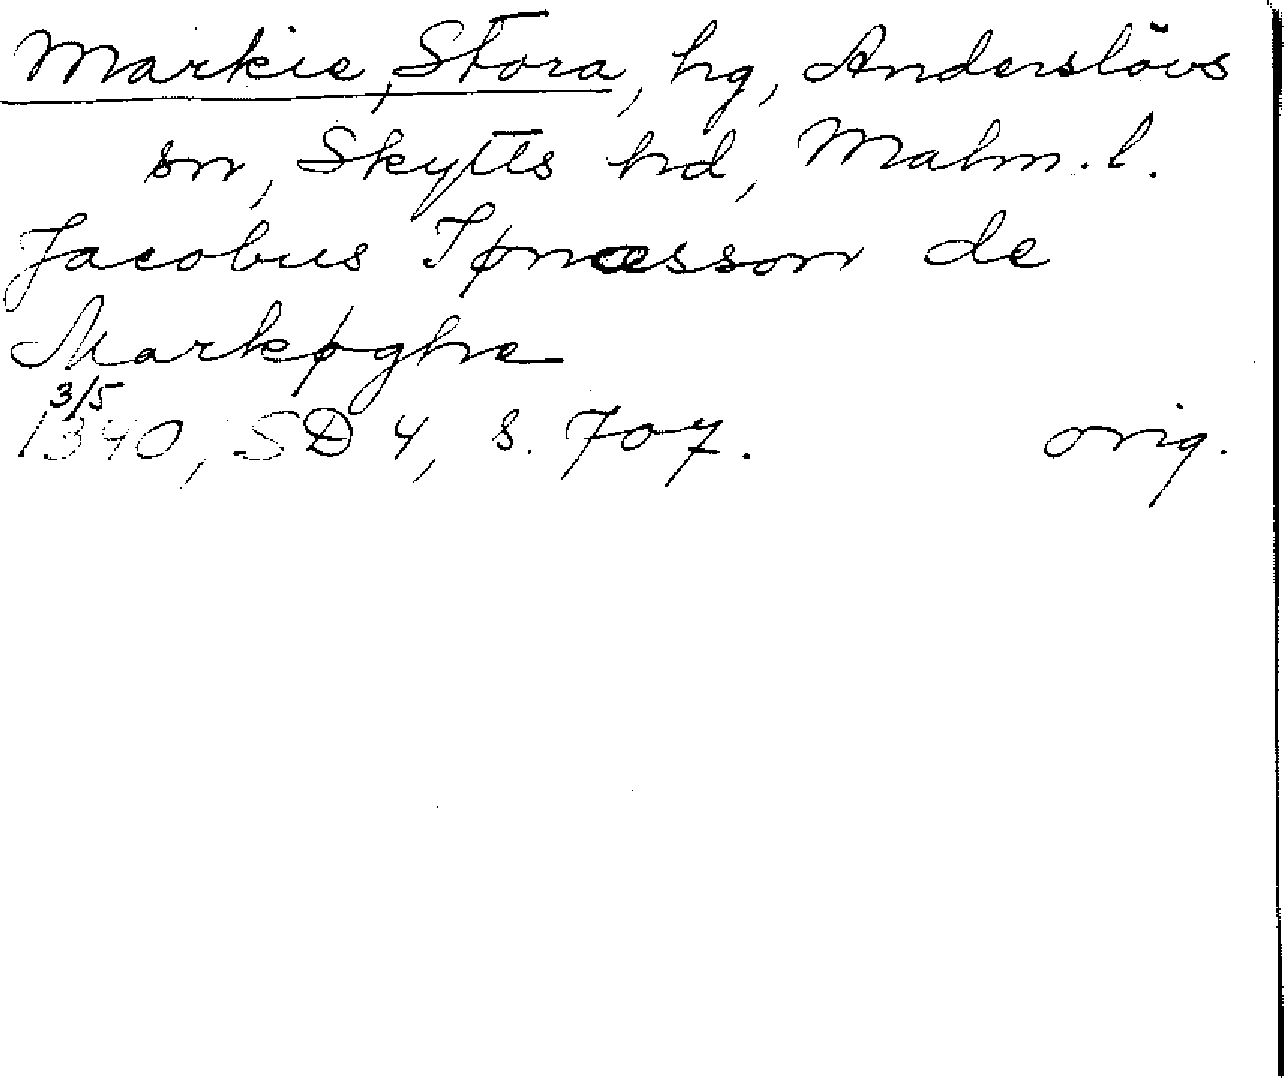 Markie, Stora, hg, Anderslövs
sn, Skytts hd, Malm. l.
Jacobus Tønæsson de
Markøghe
3/5
1340, SD 4, s. 707. orig.